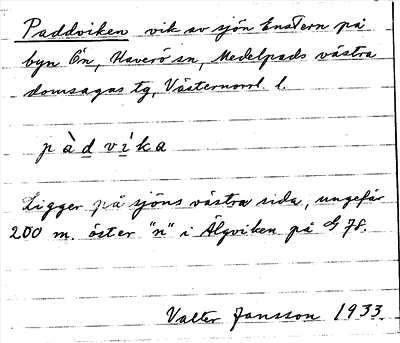 Paddviken vik av sjön Enstern på
byn Ön, Haverö sn, Medelpads västra
domsagas tg, Västernorrl. l.
pàdvìka
Ligger på sjöns västra sida, ungefär
200 m. öster "n" i Älgviken på G 78.
Valter Jansson 1933.